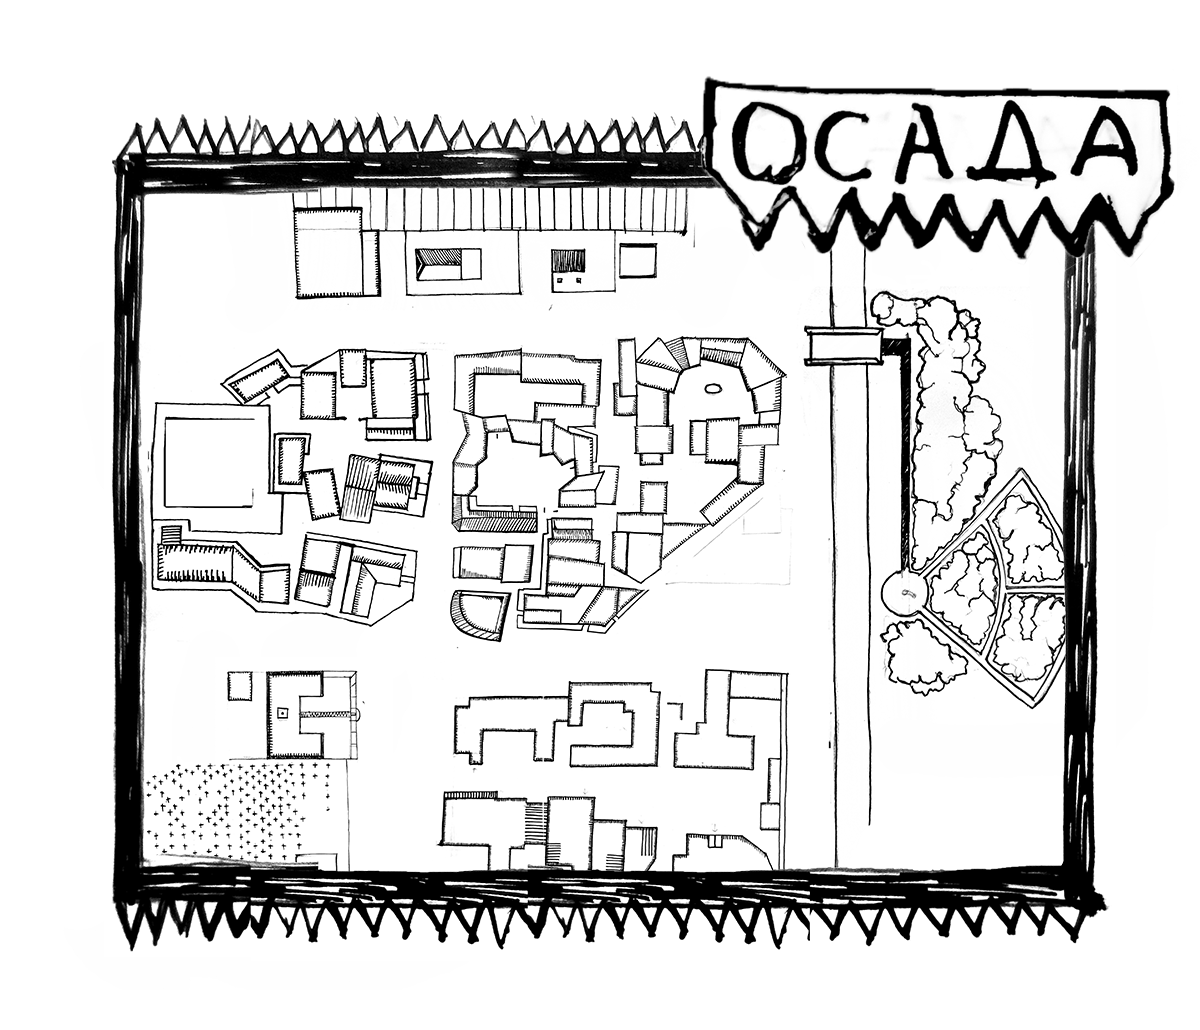 ОСАДА